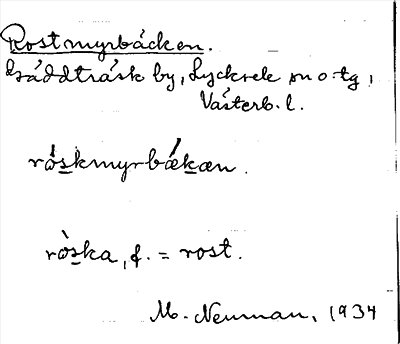 Rostmyrbäcken.
Gäddträsk by, Lycksele sn o. tg,
Västerb. l.
råskmyrbækæn.
ròska, f. = rost.
M. Neuman, 1934